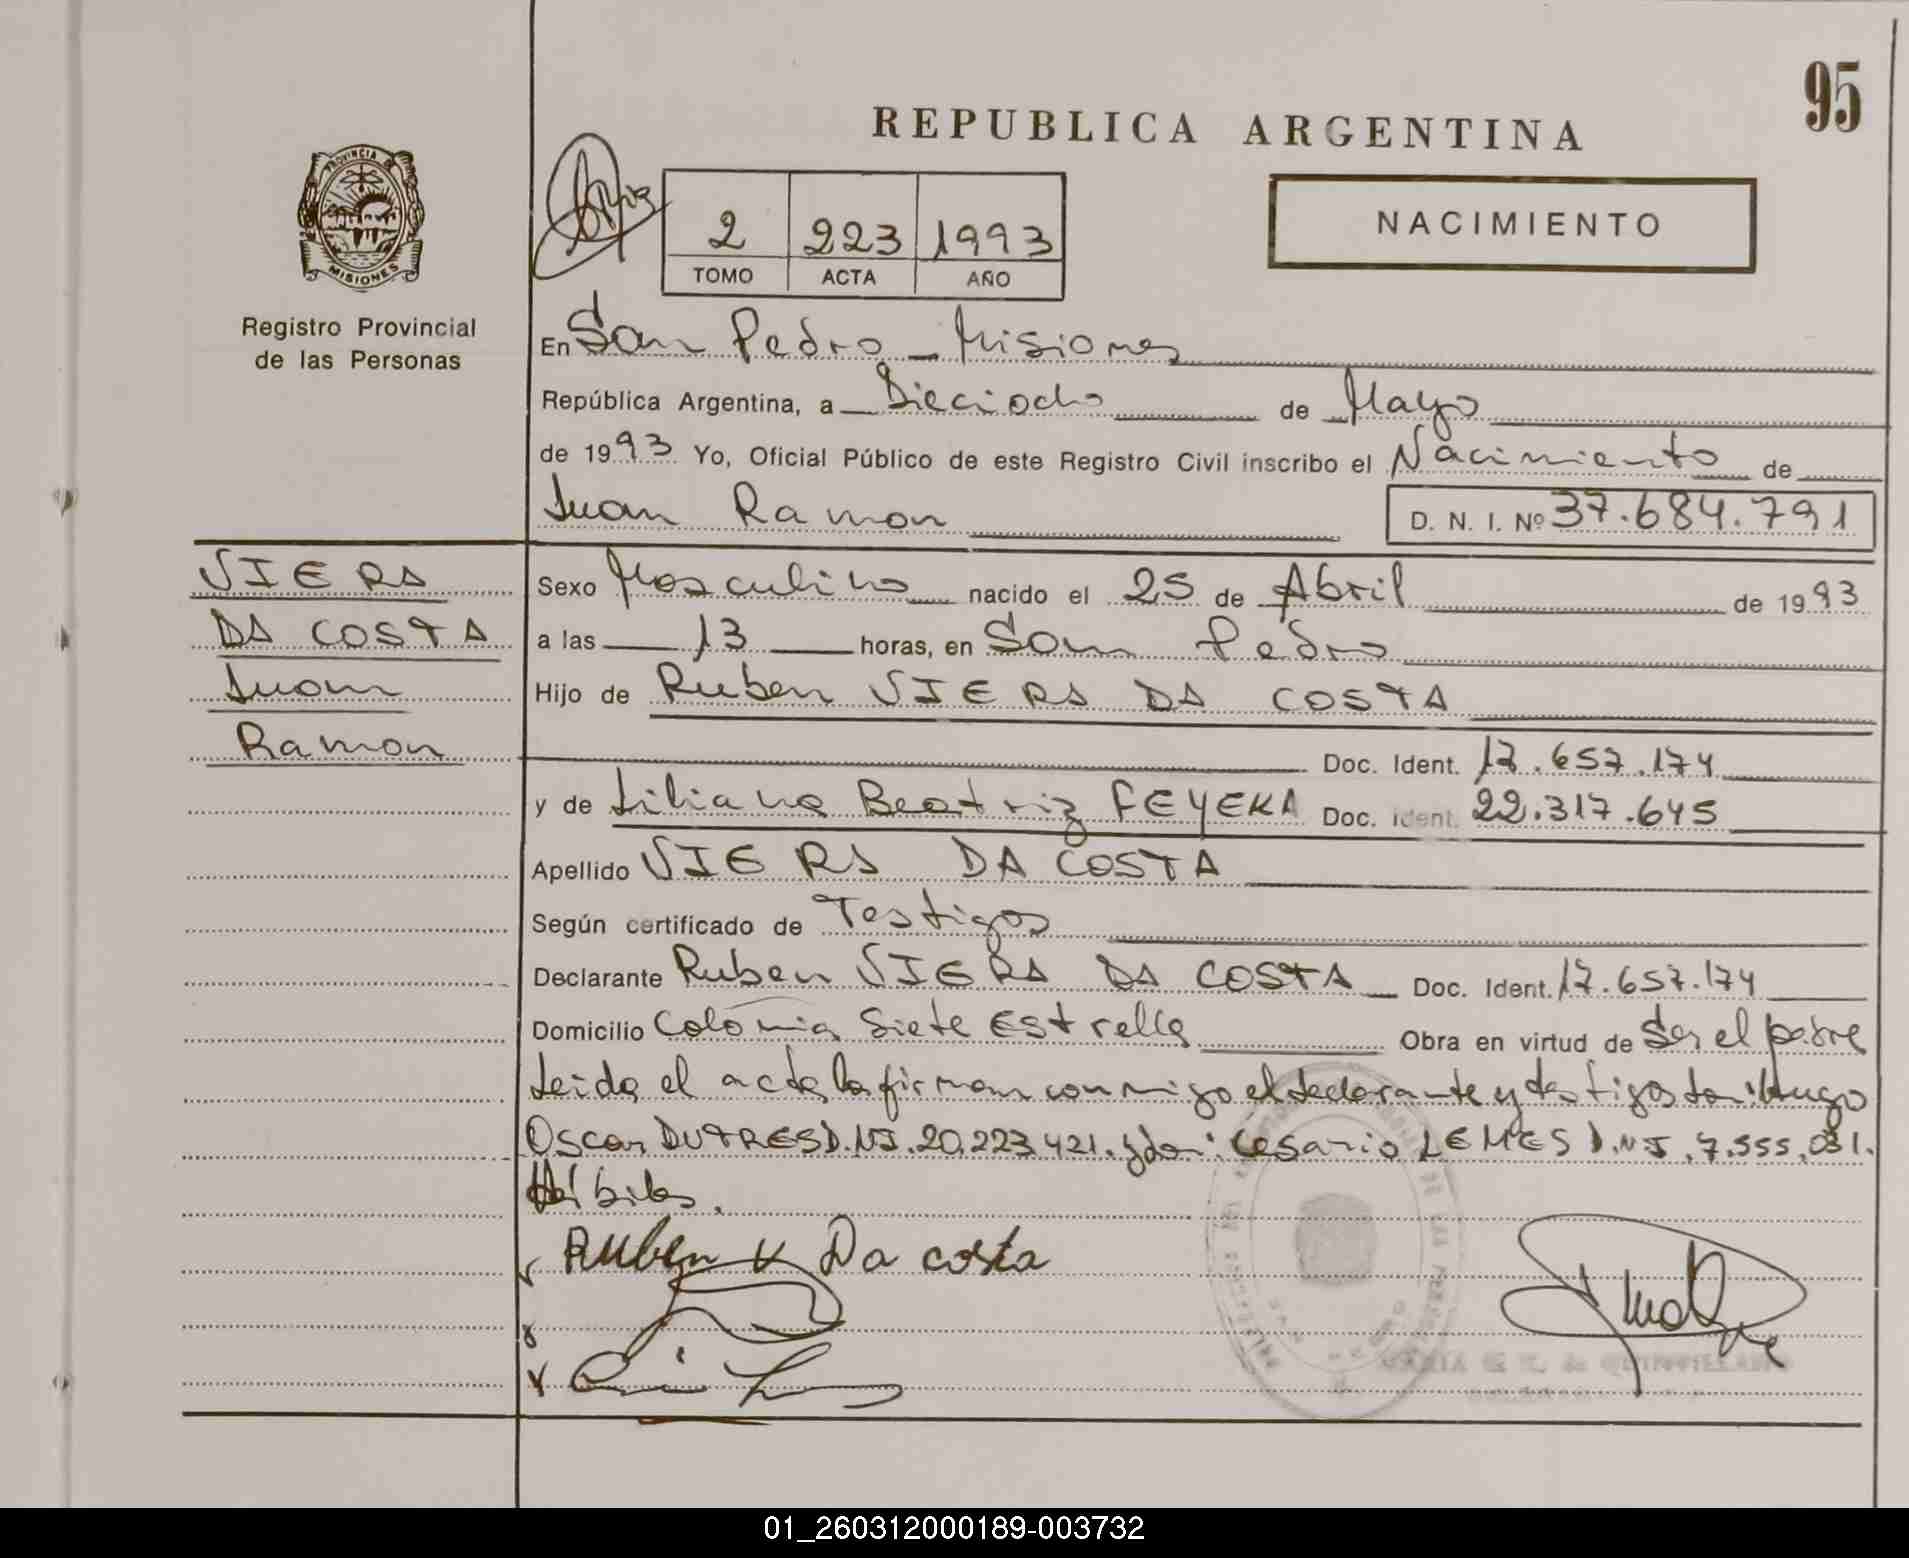 95
REPUBLICA ARGENTINA
NACIMIENTO
2 223 1993
TOMO ACTA AÑO
PROVINCIA DE
MISIONES
Registro Provincial
de las Personas
En San Pedro - Misiones
República Argentina, a Dieciocho de Mayo
de 1993 Yo, Oficial Público de este Registro Civil inscribo el Nacimiento de
Juan Ramon D. N. I. Nº 37.684.791
VIERA
DA COSTA
Juan
Ramon
Sexo Masculino nacido el 25 de Abril de 1993
a las 13 horas, en San Pedro
Hijo de Ruben VIERA DA COSTA
Doc. Ident. 17.657.174
y de Liliana Beatriz FEYEKA Doc. ident. 22.317.645
Apellido VIERA DA COSTA
Según certificado de Testigos
Declarante Ruben VIERA DA COSTA Doc. Ident. 17.657.174
Domicilio Colonia Siete Estrella Obra en virtud de Ser el padre
Leida el acta la firman conmigo el declarante y testigos don: Hugo
Oscar DUTRES D.NI. 20.223.421. y don: Cesario LEMES D.NI. 7.555.031.
Hábiles.
Ruben V Da costa
01_260312000189-003732